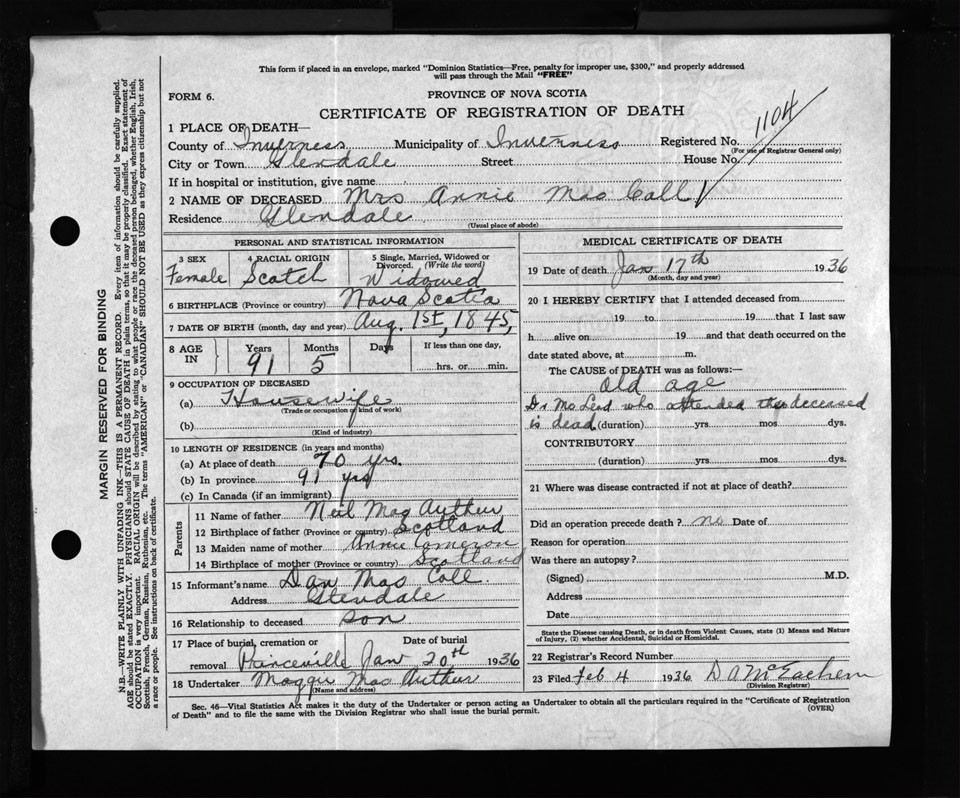 This form if placed in an envelope, marked "Dominion Statistics—Free, penalty for improper use, $300," and properly addressed
will pass through the Mail "FREE"
FORM 6.
PROVINCE OF NOVA SCOTIA
CERTIFICATE OF REGISTRATION OF DEATH
1104
1 PLACE OF DEATH—
County of Inverness Municipality of Inverness Registered No.
(For use of Registrar General only)
City or Town Glendale Street House No.
If in hospital or institution, give name
2 NAME OF DECEASED Mrs Annie Mac Call
Residence Glendale
(Usual place of abode)
PERSONAL AND STATISTICAL INFORMATION
3 SEX 4 RACIAL ORIGIN 5 Single, Married, Widowed or
Divorced. (Write the word)
Female Scotch Widowed
6 BIRTHPLACE (Province or country) Nova Scotia
7 DATE OF BIRTH (month, day and year) Aug. 1st, 1845,
8 AGE IN Years Months Days If less than one day,
91 5 hrs. or min.
9 OCCUPATION OF DECEASED
(a) Housewife
(Trade or occupation or kind of work)
(b)
(Kind of industry)
10 LENGTH OF RESIDENCE (in years and months)
(a) At place of death 70 yrs.
(b) In province 91 yrs
(c) In Canada (if an immigrant)
Parents
11 Name of father Neil Mac Arthur
12 Birthplace of father (Province or country) Scotland
13 Maiden name of mother Annie Cameron
14 Birthplace of mother (Province or country) Scotland
15 Informant's name Dan Mac Call.
Address Glendale
16 Relationship to deceased son
17 Place of burial, cremation or Date of burial
removal Princeville Jan 20th 1936
18 Undertaker Maggie Mac Arthur
(Name and address)
MEDICAL CERTIFICATE OF DEATH
19 Date of death Jan 17th 1936
(Month, day and year)
20 I HEREBY CERTIFY that I attended deceased from
19 to 19 that I last saw
h alive on 19 and that death occurred on the
date stated above, at m.
The CAUSE of DEATH was as follows:—
Old age
Dr McLeod who attended the deceased
is dead (duration) yrs. mos. dys.
CONTRIBUTORY
(duration) yrs mos dys.
21 Where was disease contracted if not at place of death?
Did an operation precede death? no Date of
Reason for operation
Was there an autopsy?
(Signed) M.D.
Address
Date
State the Disease causing Death, or in death from Violent Causes, state (1) Means and Nature
of Injury, (2) whether Accidental, Suicidal or Homicidal.
22 Registrar's Record Number
23 Filed Feb 4 1936 D A McEachern
(Division Registrar)
Sec. 46—Vital Statistics Act makes it the duty of the Undertaker or person acting as Undertaker to obtain all the particulars required in the "Certificate of Registration
of Death" and to file the same with the Division Registrar who shall issue the burial permit.
(OVER)
MARGIN RESERVED FOR BINDING
N.B.—WRITE PLAINLY WITH UNFADING INK—THIS IS A PERMANENT RECORD. Every item of information should be carefully supplied.
AGE should be stated EXACTLY. PHYSICIANS should STATE CAUSE OF DEATH in plain terms, so that it may be properly classified. Exact statement of
OCCUPATION is very important. RACIAL ORIGIN will be described by stating to what people or race the deceased person belonged, whether English, Irish,
Scottish, French, German, Russian, Ruthenian, etc. The terms "AMERICAN" or "CANADIAN" SHOULD NOT BE USED as they express citizenship but not
a race or people. See instructions on back of certificate.